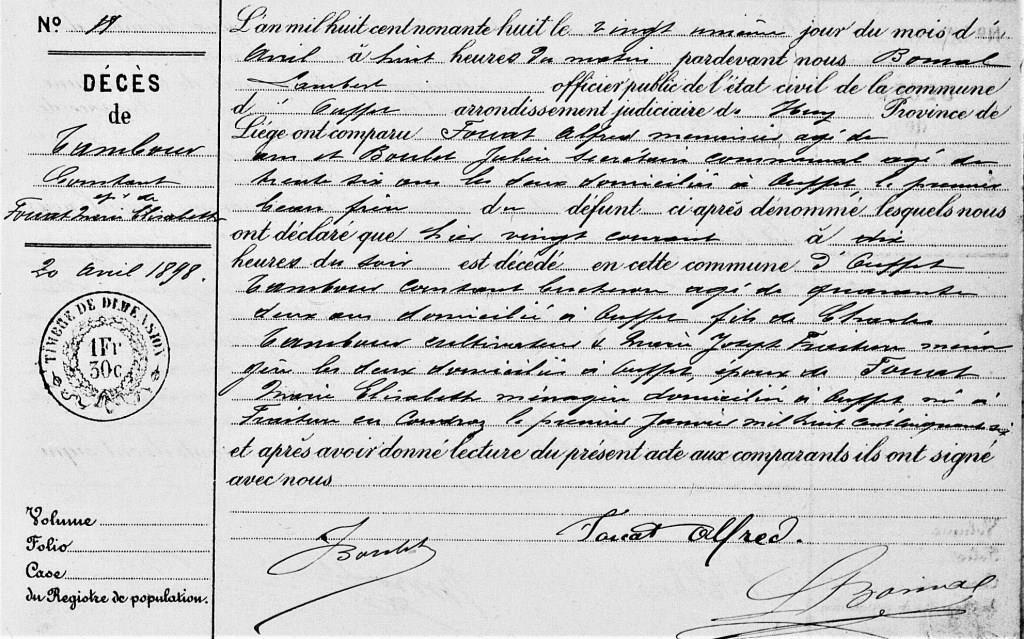 Nº
DÉCÈS
de
Tambour
Constant
ép. de
Fouat Marie Elisabeth
20 avril 1898.
TIMBRE DE DIMENSION
1Fr
30c.
Volume
Folio
Case
du Registre de population.
L'an mil huit cent nonante huit le vingt unième jour du mois d'
avril à huit heures du matin pardevant nous Bomal
Lambert officier public de l'état civil de la commune
d'Ouffet arrondissement judiciaire de Huy Province de
Liége ont comparu Fouat Alfred menuisier agé de
ans et Boulet Julien secrétaire communal agé de
trente six ans les deux domiciliés à Ouffet, le premier
beau frère du défunt ci-après dénommé, lesquels nous
ont déclaré que hier vingt courant à dix
heures du soir est décédé en cette commune d'Ouffet
Tambour Constant bucheron agé de quarante
deux ans domicilié à Ouffet fils de Charles
Tambour cultivateur & Marie Joseph ména
gère les deux domiciliés à Ouffet, époux de Fouat
Marie Elisabeth ménagère domiciliée à Ouffet né à
Fraiture en Condroz le premier Janvier mil huit cent cinquante six
et après avoir donné lecture du présent acte aux comparants ils ont signé
avec nous
J Boulet
Fouat Alfred.
L Bomal